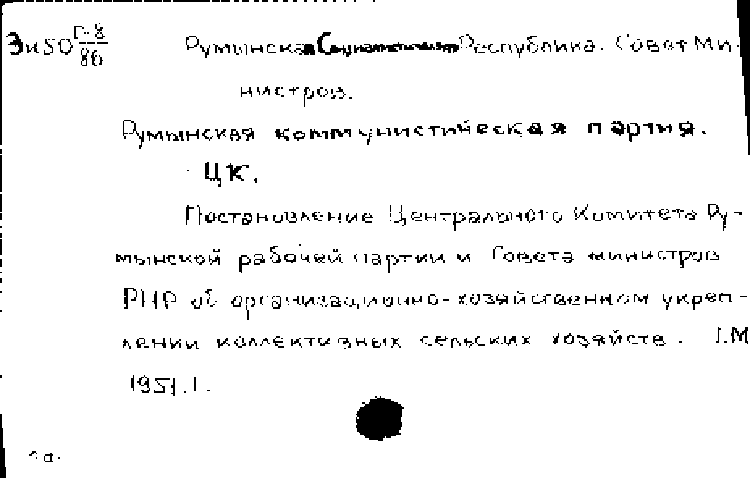 Эи50 Г-8/86
Румынская Социалистическая Республика. Совет Ми-
нистров.
Румынская коммунистическая партия.
ЦК.
Постановление Центрального Комитета Ру-
мынской рабочей партии и Совета министров
РНР об организационно-хозяйственном укреп-
лении коллективных сельских хозяйств. I.М
1951.I.